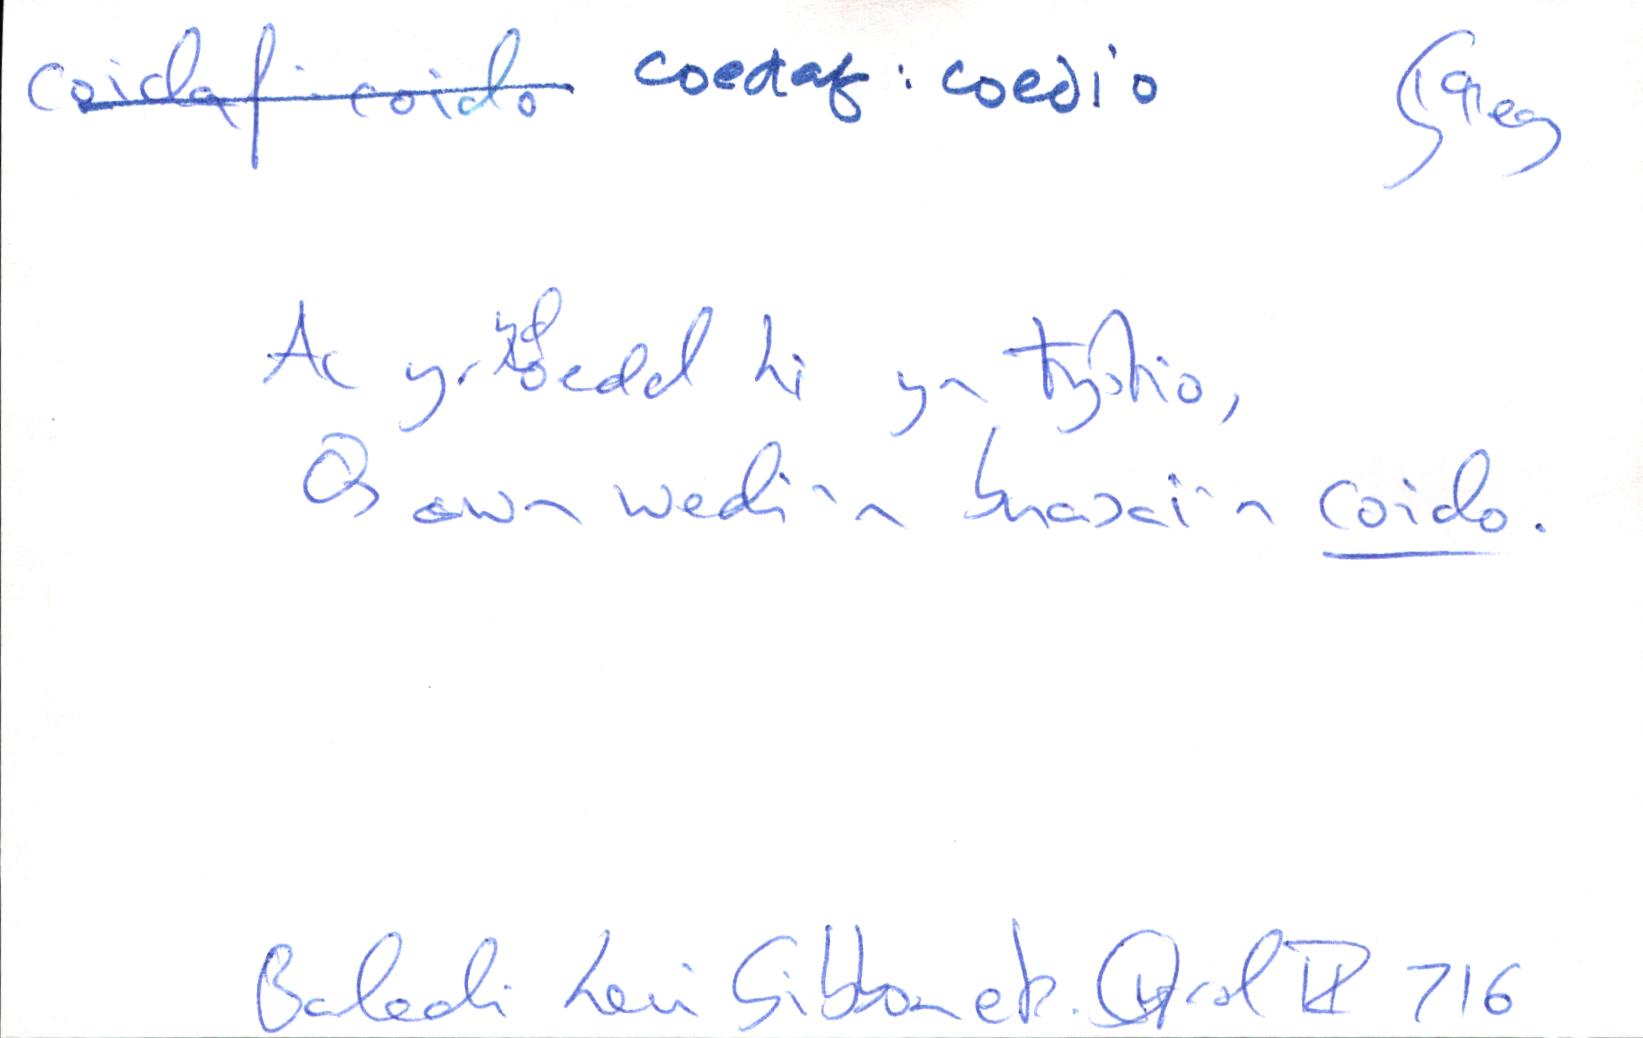 coidaf: coido coedaf: coedio
Ac yr oedd hi yn tystio,
Os own wedi 'n i'n coido.
Baledi Levi Gibbon etc. Cyrol II 716